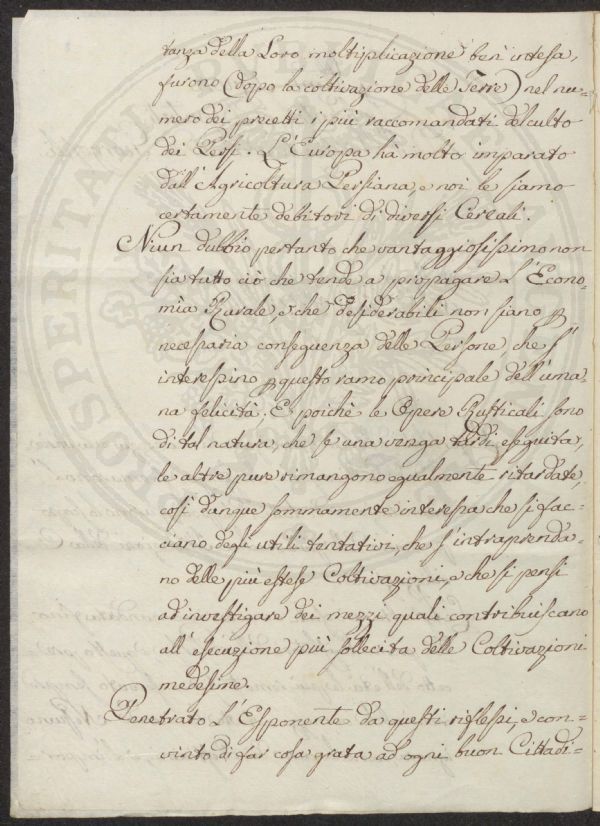 tanza della Loro moltiplicazione ben intesa,
furono (dopo la coltivazione delle Terre) nel nu=
mero dei precetti i più raccomandati del culto
dei Persi. L'Europa hà molto imparato
dall'Agricoltura Persiana, e noi le siamo
certamente debitori di diversi Cereali.
Niun dubbio pertanto che vantaggiosissimo non
sia tutto ciò che tende a propagare L'Econo=
mìa Rurale, e che desiderabili non siano p
necessaria conseguenza delle Persone, che s'
interessino p questo ramo principale dell'uma=
na felicità. E poichè le Opere Rusticali sono
di tal natura, che se una venga tardi eseguita,
le altre pure rimangono egualmente ritardate,
così dunque sommamente interessa che si fac=
ciano degli utili tentativi, che s'intraprenda=
no delle più estese Coltivazioni, e che si pensi
ad investigare dei mezzi quali contribuiscano
all'esecuzione più sollecita delle Coltivazioni
medesime.
Penetrato L'Esponente da questi riflessi, e con=
vinto di far cosa grata ad ogni buon Cittadi=